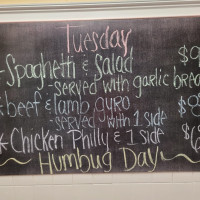 Tuesday
* Spaghetti & salad
- served with garlic bread
* beef & lamb gyro
- served with 1 side
* Chicken Philly & 1 side
Humbug Day